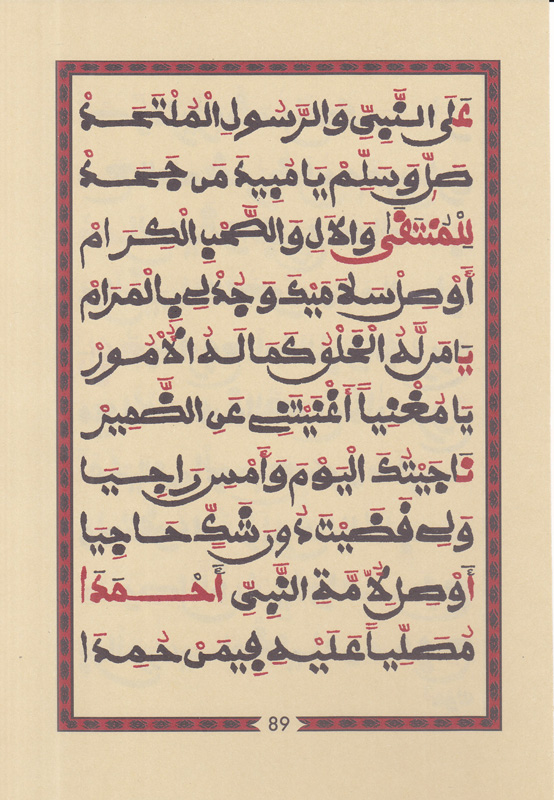 عَلَى النَّبِيِّ وَالرَّسُولِ الْمُلْتَحَدْ
صَلِّ وَسَلِّمْ يَا مُبِيدَ مَن جَحَدْ
لِلْمُنتَقَى وَالآلِ وَالصَّحْبِ الْكِرَامْ
أَوْصِلْ سَلَامَيْكَ وَجُدْ لِي بِالْمَرَامْ
يَا مَن لَّهُ الْخَلْقُ كَمَا لَهُ الْأُمُورْ
يَا مُغْنِياً أَغْنَيْتَنِي عَنِ الضَّمِيرْ
نَاجَيْتُكَ الْيَوْمَ وَأَمْسِ رَاجِيَا
وَلِي قَضَيْتَ دُونَ شَكٍّ حَاجِيَا
أَوْصِلْ لِأُمَّةِ النَّبِيِّ أَحْمَدَا
مُصَلِّياً عَلَيْهِ فِيمَنْ حَمِدَا
89